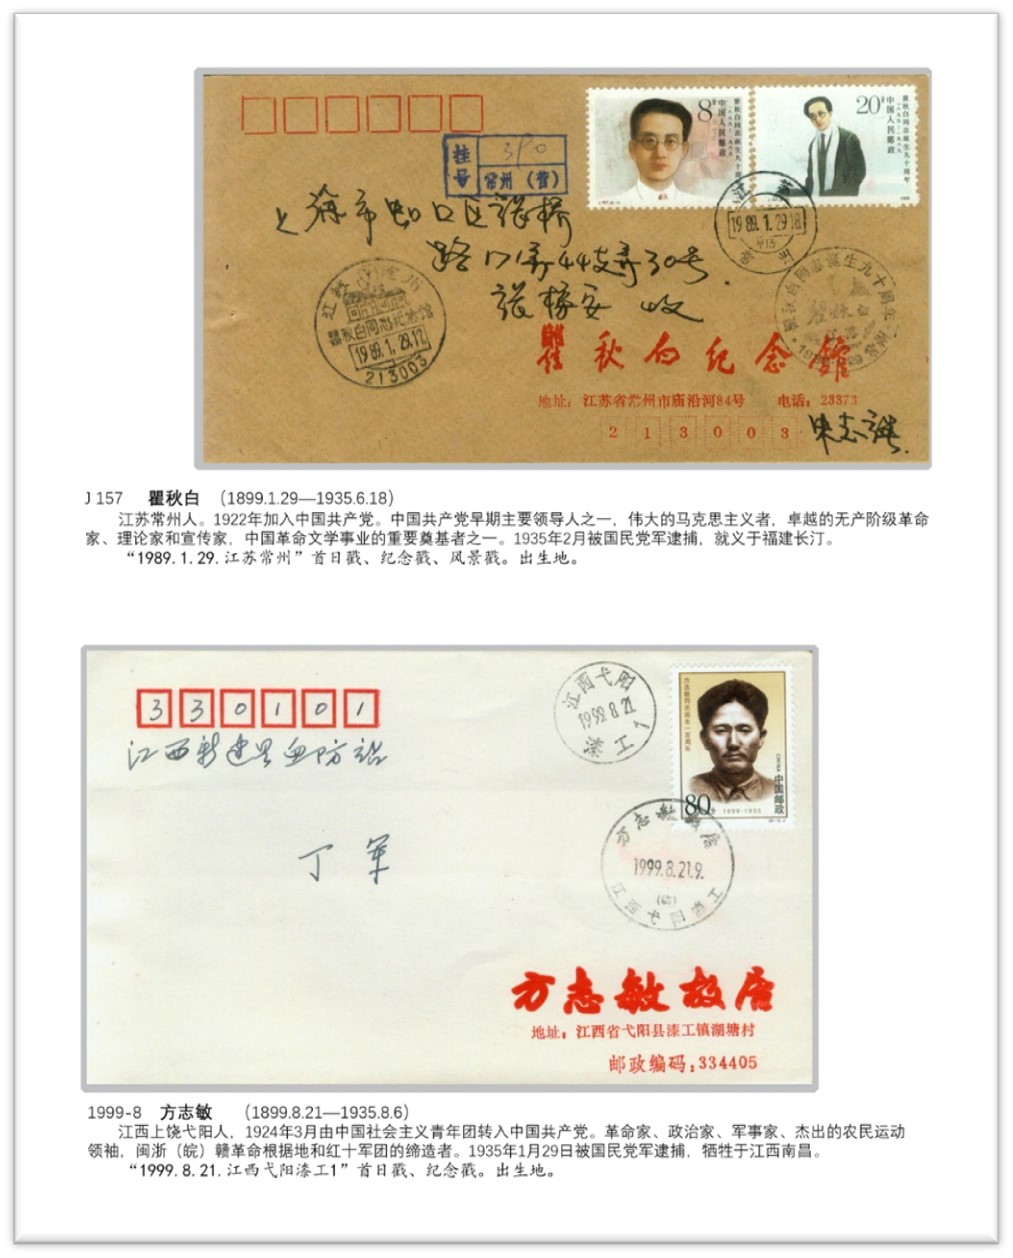 8分
中国人民邮政
瞿秋白同志诞生九十周年
一八九九——一九八九
20分
中国人民邮政
瞿秋白同志诞生九十周年
一八九九——一九八九
挂号
390
常州（营）
上海市虹口区张桥
路171弄44支弄30号
张 安 收
江苏
1989.1.29.18
常州
江苏 常州
瞿秋白同志纪念馆
1989.1.29.17
213003
瞿秋白同志诞生九十周年
瞿秋白纪念馆
地址：江苏省常州市庙沿河84号 电话：23373
2 1 3 0 0 3
J 157 瞿秋白 （1899.1.29—1935.6.18）
江苏常州人。1922年加入中国共产党。中国共产党早期主要领导人之一，伟大的马克思主义者，卓越的无产阶级革命
家、理论家和宣传家，中国革命文学事业的重要奠基者之一。1935年2月被国民党军逮捕，就义于福建长汀。
“1989.1.29.江苏常州”首日戳、纪念戳、风景戳。出生地。
3 3 0 1 0 1
江西新建县血防站
丁军
江西弋阳
1999.8.21
漆工 1
方志敏同志诞生一百周年
中国邮政
CHINA
80分
1899-1935
方志敏故居
1999.8.21.9.
江西弋阳漆工
方志敏故居
地址：江西省弋阳县漆工镇湖塘村
邮政编码：334405
1999-8 方志敏 （1899.8.21—1935.8.6）
江西上饶弋阳人，1924年3月由中国社会主义青年团转入中国共产党。革命家、政治家、军事家、杰出的农民运动
领袖，闽浙（皖）赣革命根据地和红十军团的缔造者。1935年1月29日被国民党军逮捕，牺牲于江西南昌。
“1999.8.21.江西弋阳漆工1”首日戳、纪念戳。出生地。